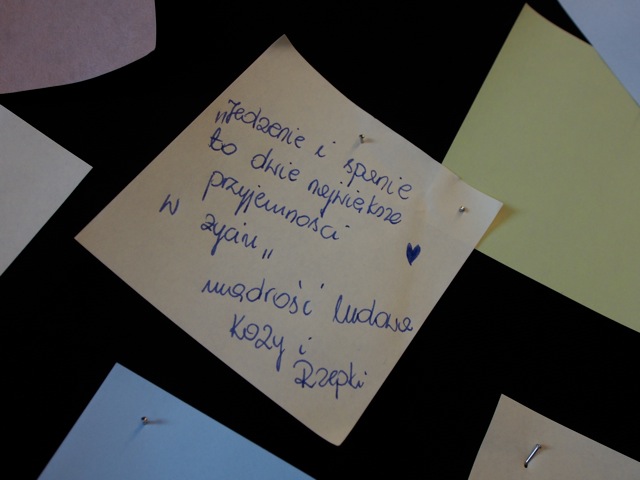 „Jedzenie i spanie
to dwie największe
przyjemności
w życiu„
mądrość ludowa
Kozy i
Rzepki